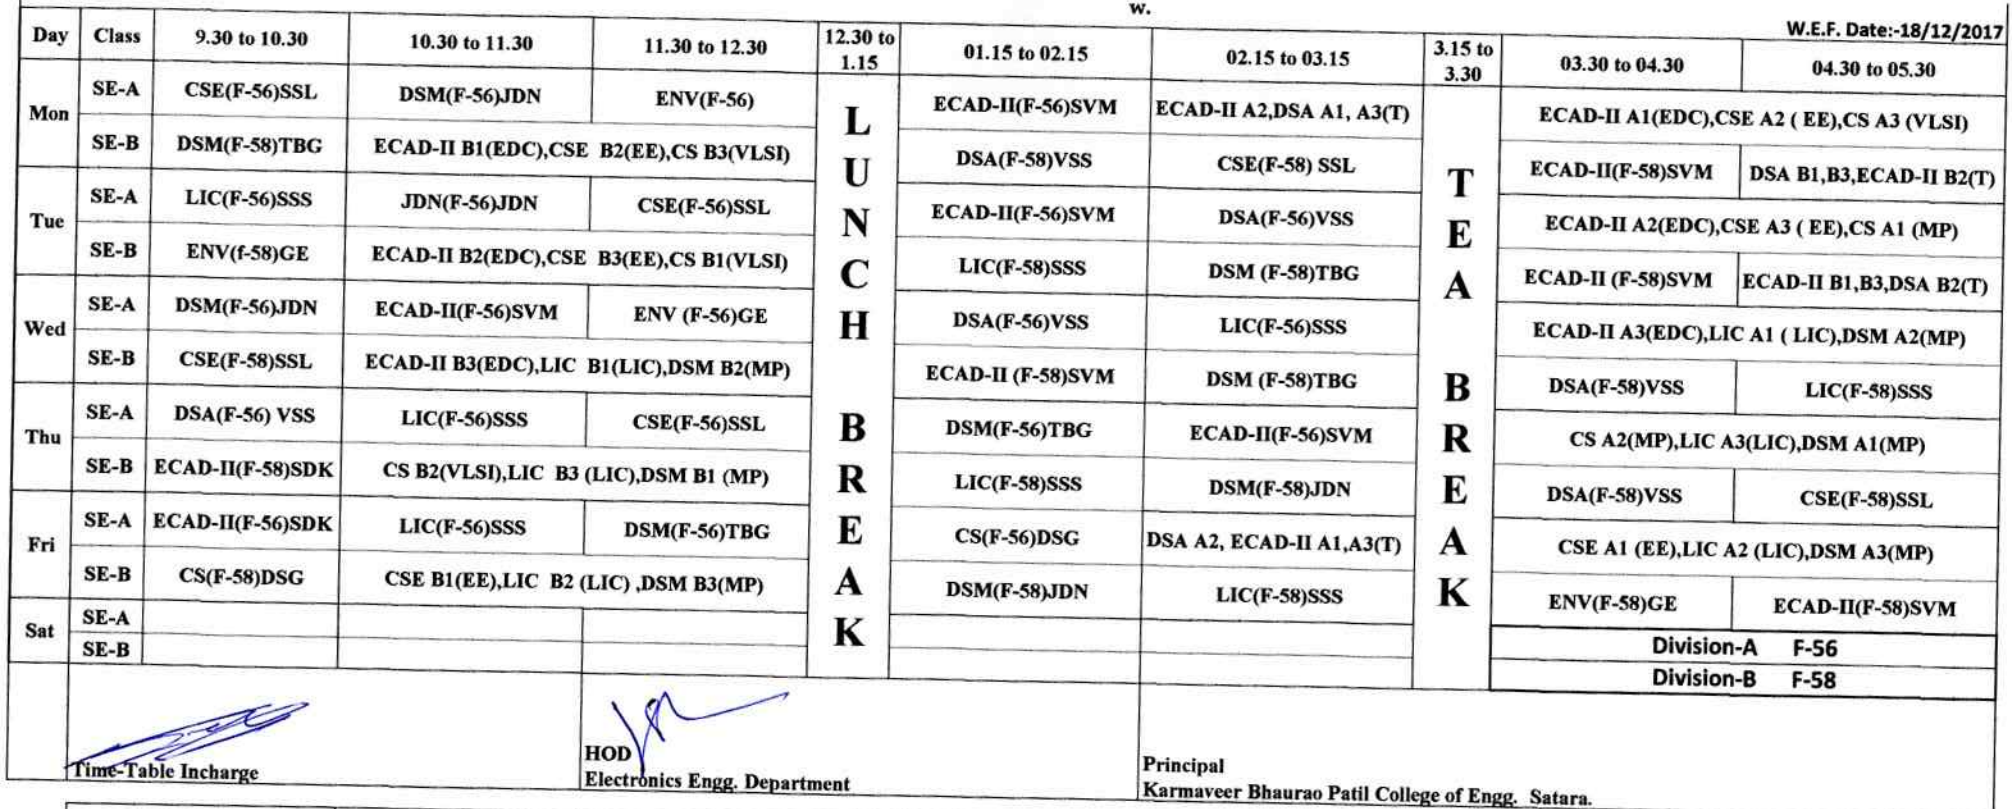 w.
W.E.F. Date:-18/12/2017
Day Class 9.30 to 10.30 10.30 to 11.30 11.30 to 12.30 12.30 to 1.15 01.15 to 02.15 02.15 to 03.15 3.15 to 3.30 03.30 to 04.30 04.30 to 05.30
Mon SE-A CSE(F-56)SSL DSM(F-56)JDN ENV(F-56) ECAD-II(F-56)SVM ECAD-II A2,DSA A1, A3(T) ECAD-II A1(EDC),CSE A2 ( EE),CS A3 (VLSI)
SE-B DSM(F-58)TBG ECAD-II B1(EDC),CSE B2(EE),CS B3(VLSI) DSA(F-58)VSS CSE(F-58) SSL ECAD-II(F-58)SVM DSA B1,B3,ECAD-II B2(T)
Tue SE-A LIC(F-56)SSS JDN(F-56)JDN CSE(F-56)SSL ECAD-II(F-56)SVM DSA(F-56)VSS ECAD-II A2(EDC),CSE A3 ( EE),CS A1 (MP)
SE-B ENV(f-58)GE ECAD-II B2(EDC),CSE B3(EE),CS B1(VLSI) LIC(F-58)SSS DSM (F-58)TBG ECAD-II (F-58)SVM ECAD-II B1,B3,DSA B2(T)
Wed SE-A DSM(F-56)JDN ECAD-II(F-56)SVM ENV (F-56)GE DSA(F-56)VSS LIC(F-56)SSS ECAD-II A3(EDC),LIC A1 ( LIC),DSM A2(MP)
SE-B CSE(F-58)SSL ECAD-II B3(EDC),LIC B1(LIC),DSM B2(MP) ECAD-II (F-58)SVM DSM (F-58)TBG DSA(F-58)VSS LIC(F-58)SSS
Thu SE-A DSA(F-56) VSS LIC(F-56)SSS CSE(F-56)SSL DSM(F-56)TBG ECAD-II(F-56)SVM CS A2(MP),LIC A3(LIC),DSM A1(MP)
SE-B ECAD-II(F-58)SDK CS B2(VLSI),LIC B3 (LIC),DSM B1 (MP) LIC(F-58)SSS DSM(F-58)JDN DSA(F-58)VSS CSE(F-58)SSL
Fri SE-A ECAD-II(F-56)SDK LIC(F-56)SSS DSM(F-56)TBG CS(F-56)DSG DSA A2, ECAD-II A1,A3(T) CSE A1 (EE),LIC A2 (LIC),DSM A3(MP)
SE-B CS(F-58)DSG CSE B1(EE),LIC B2 (LIC) ,DSM B3(MP) DSM(F-58)JDN LIC(F-58)SSS ENV(F-58)GE ECAD-II(F-58)SVM
Sat SE-A
SE-B
LUNCH BREAK
TEA BREAK
Division-A F-56
Division-B F-58
Time-Table Incharge
HOD
Electronics Engg. Department
Principal
Karmaveer Bhaurao Patil College of Engg. Satara.